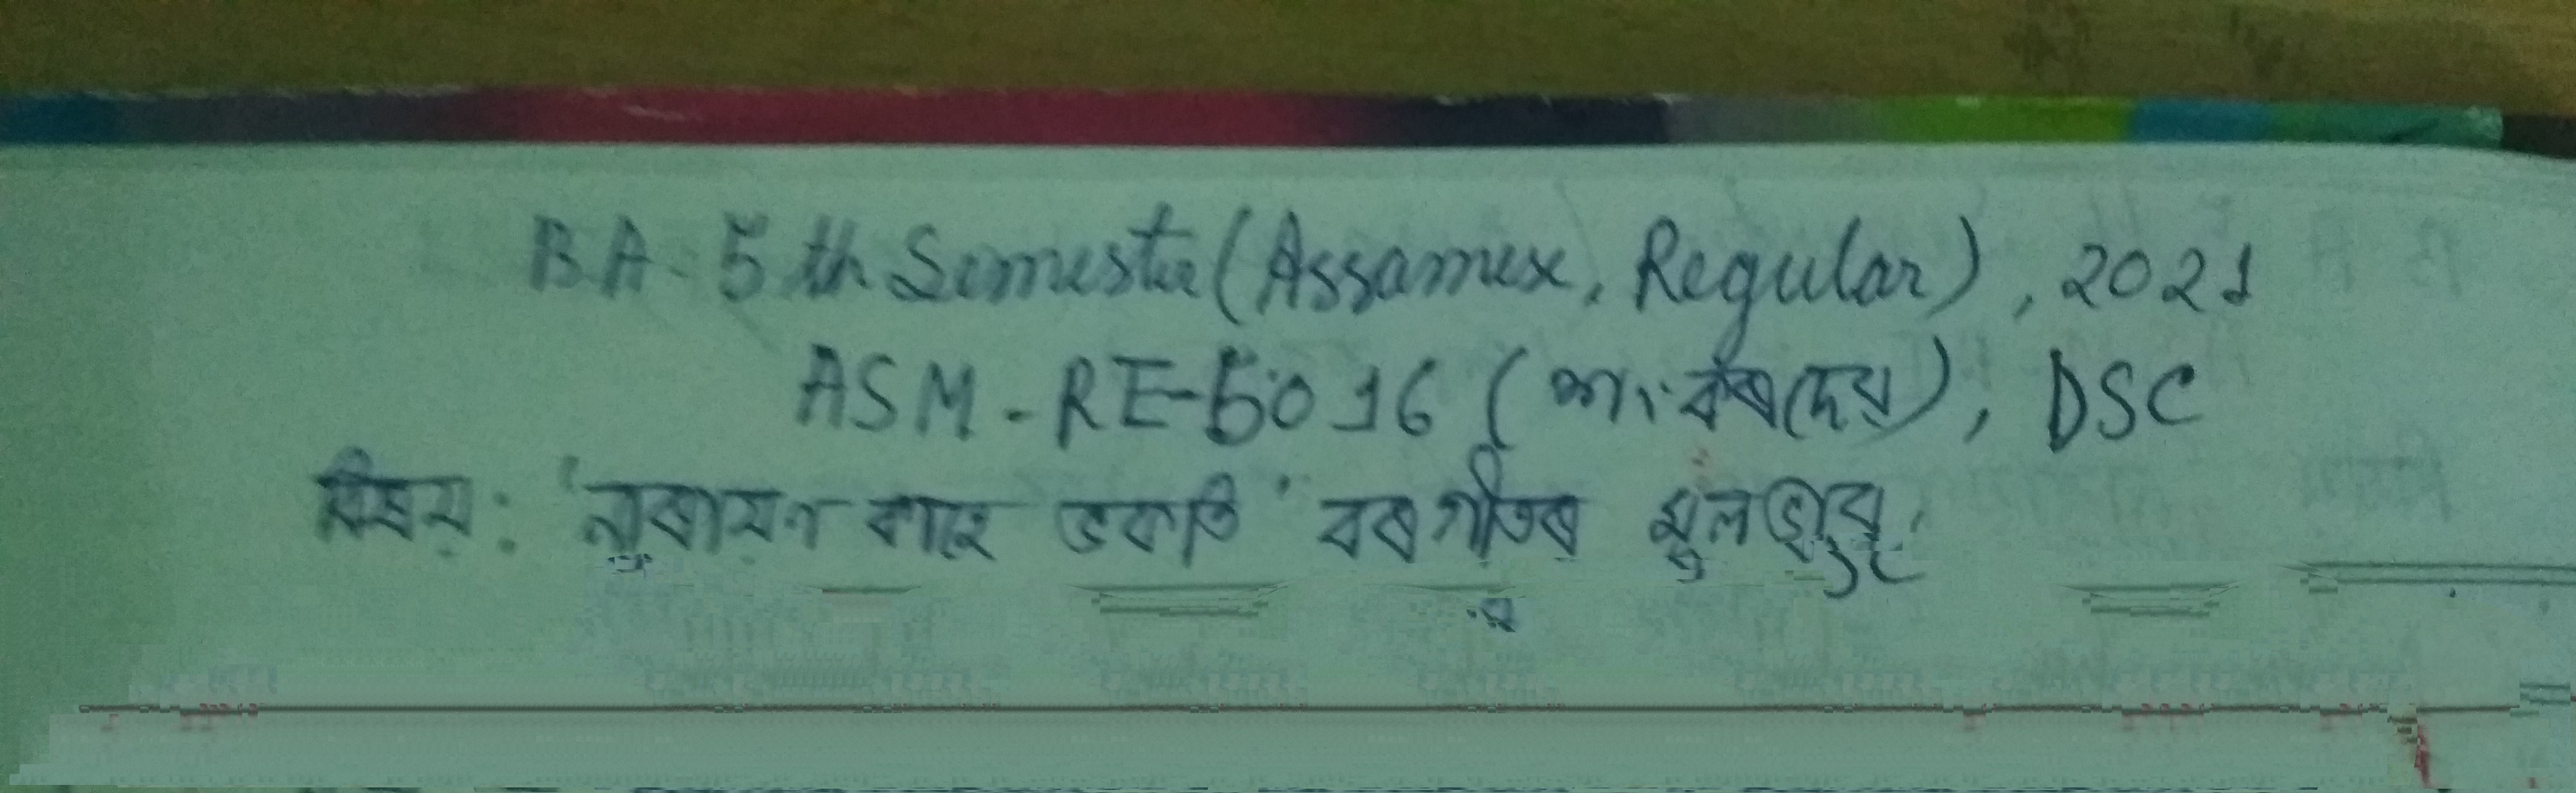 BA. 5th Semester (Assamese, Regular), 2021
ASM-RE-5016 (শংকৰদেৱ), DSC
বিষয়: 'নাৰায়ণ কাহে ভকতি' বৰগীতৰ মূলভাৱ